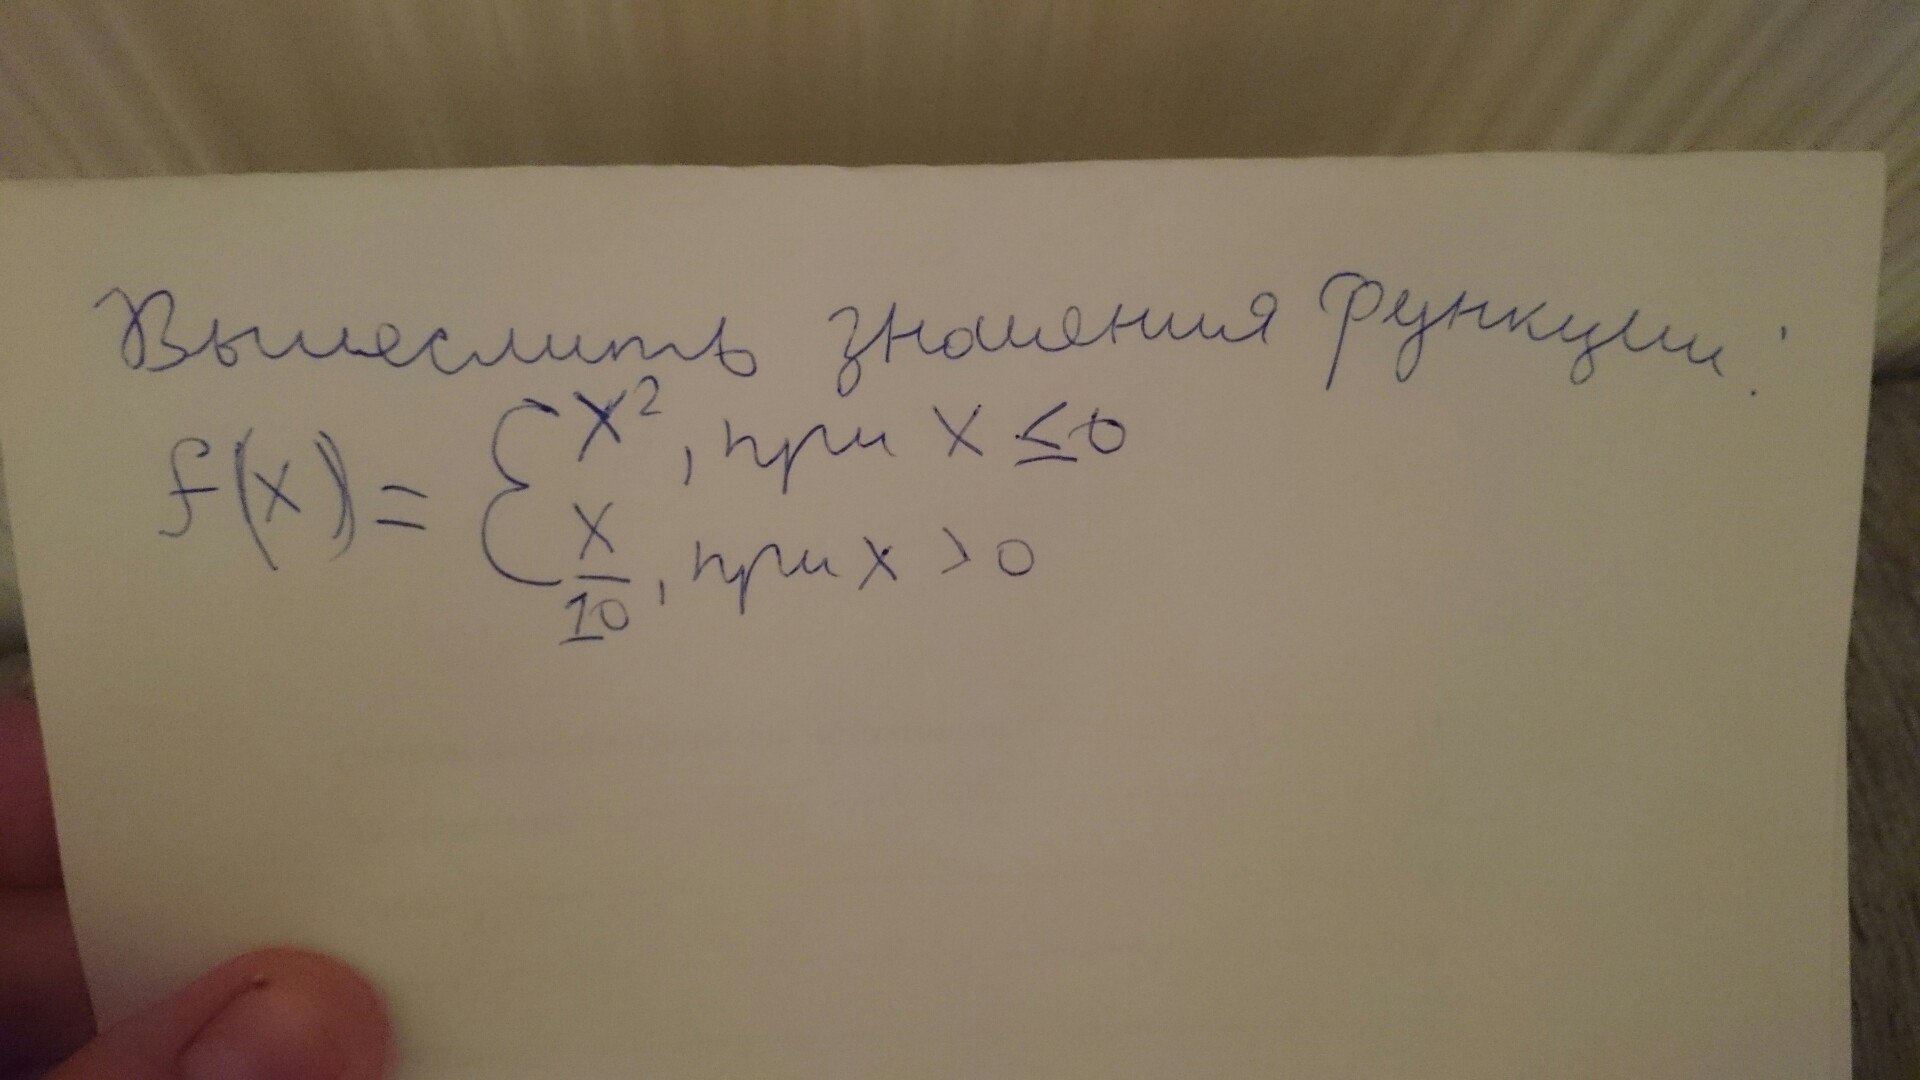 Вычеслить значения функции:
f(x) = { x², при x ≤ 0
x/10, при x > 0